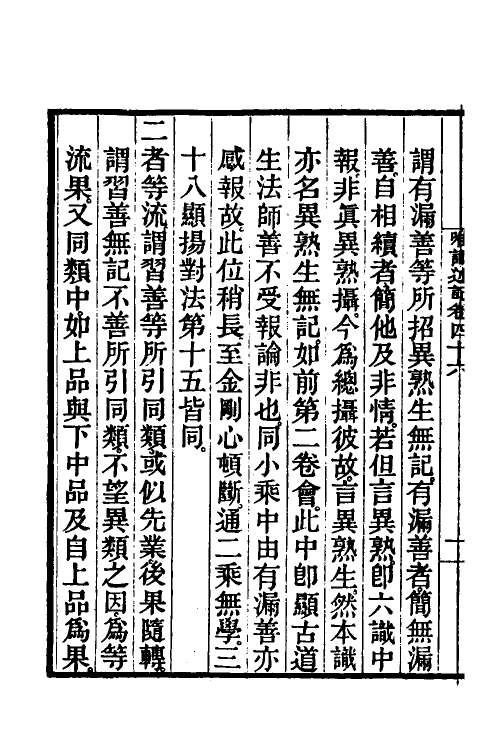 謂有漏善等所招異熟生無記。有漏善者。簡無漏
善。自相續者。簡他及非情。若但言異熟。卽六識中
報非眞異熟攝。今爲總攝彼故。言異熟生。然本識
亦名異熟生無記。如前第二卷會。此中卽顯古道
生法師善不受報論非也。同小乘中由有漏善亦
感報故。此位稍長。至金剛心頓斷。通二乘無學。三
十八顯揚對法第十五皆同。
二者等流。謂習善等所引同類。或似先業。後果隨轉。
謂習善無記不善所引同類。不望異類之因。爲等
流果。又同類中。如上品與下中品及自上品爲果。
唯識述記卷四十六